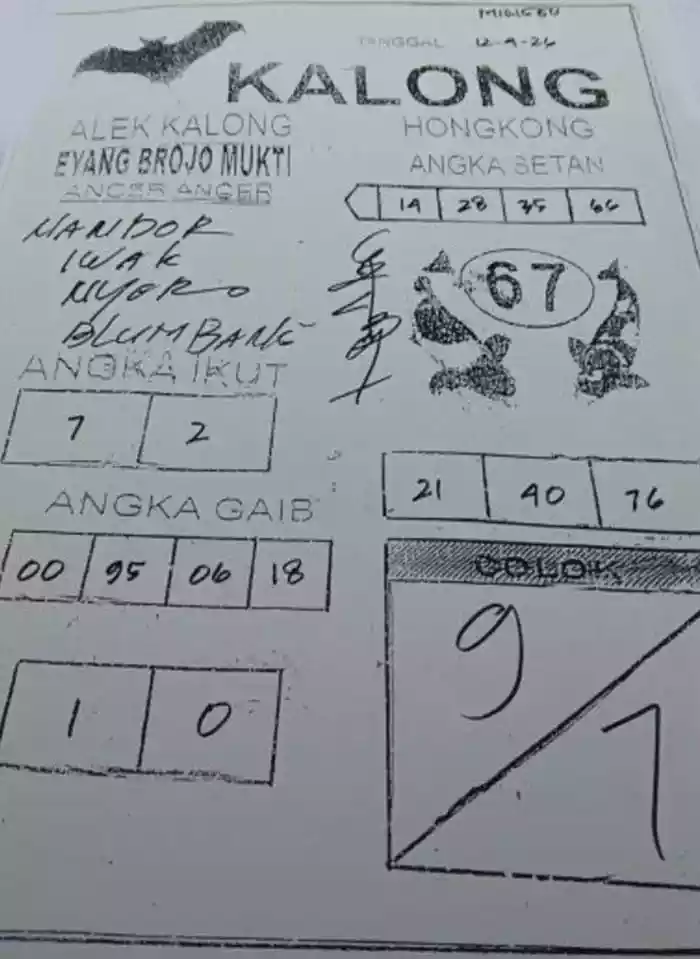 TANGGAL 12-9-26
KALONG
ALEK KALONG
EYANG BROJO MUKTI
ANGER ANGER
HONGKONG
ANGKA SETAN
14 28 35 66
67
NANDOR
IWAK
NYORO
BLUMBANG
ANGKA IKUT
7 2
21 40 76
ANGKA GAIB
00 95 06 18
COLOK
9
7
1 0